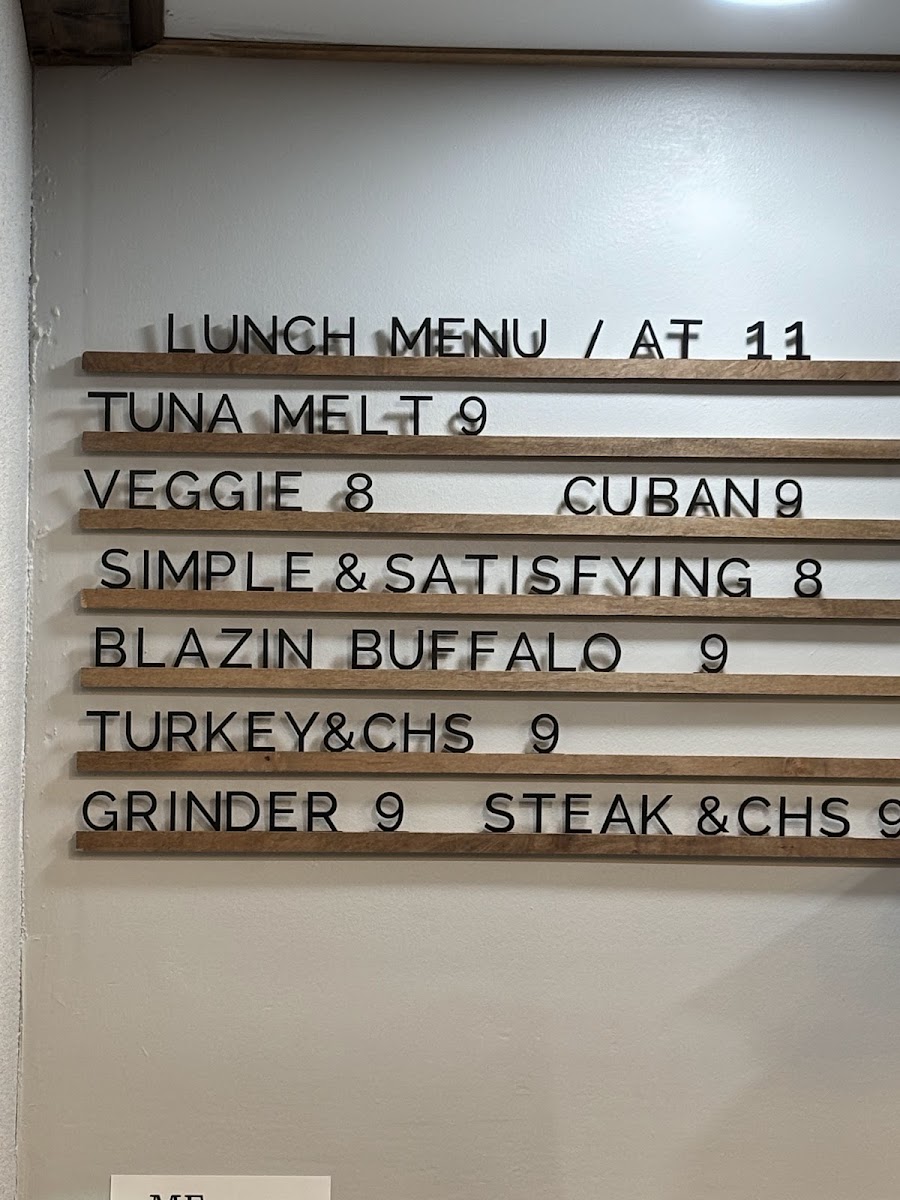 LUNCH MENU / AT 11
TUNA MELT 9
VEGGIE 8 CUBAN 9
SIMPLE & SATISFYING 8
BLAZIN BUFFALO 9
TURKEY&CHS 9
GRINDER 9 STEAK &CHS 9